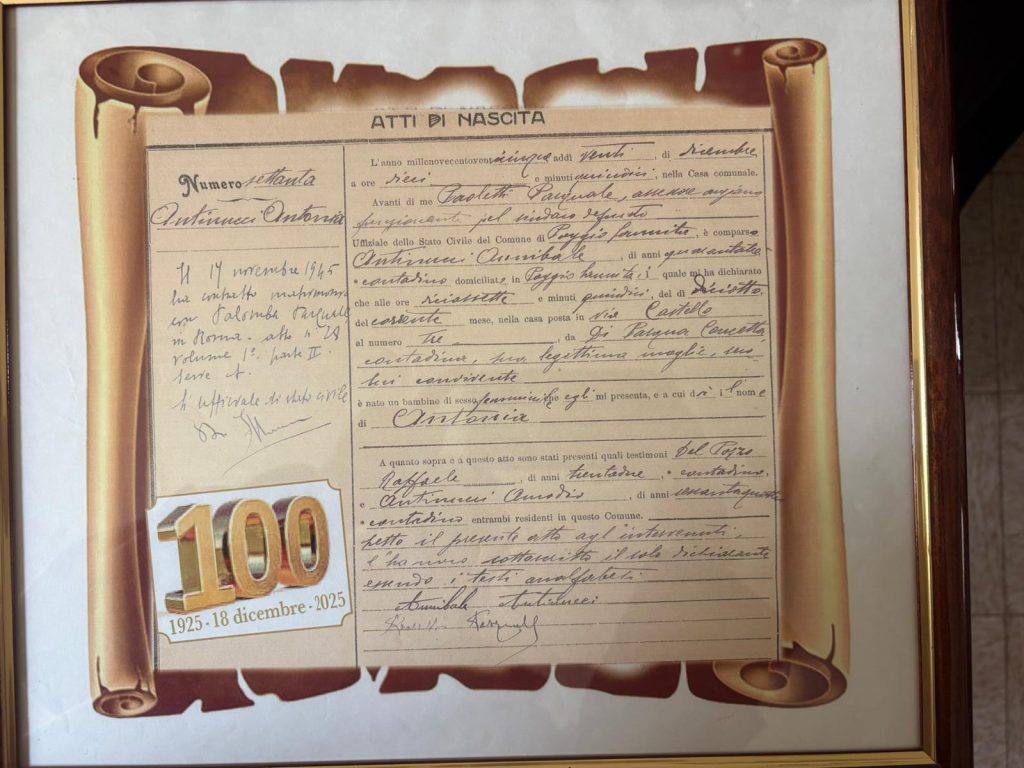 ATTI DI NASCITA
Numero settanta
Antinucci Antonia
Il 17 novembre 1945
ha contratto matrimonio
con Palomba Pasquale
in Roma. atto n 28
volume 1° parte II
serie A.
L'ufficiale di stato civile
100
1925 - 18 dicembre - 2025
L'anno millenovecentoventicinque addì venti, di dicembre
a ore dieci e minuti quindici, nella Casa comunale.
Avanti di me Paoletti Pasquale, assessore anziano
funzionante pel sindaco defunto
Uffiziale dello Stato Civile del Comune di Poggio Sannita, è comparso
Antinucci Annibale, di anni quarantatre
contadino domiciliato in Poggio Sannita, il quale mi ha dichiarato
che alle ore diciassette e minuti quindici, del dì diciotto
del corrente mese, nella casa posta in via Castello
al numero tre, da Di Pasqua Concetta
contadina, sua legittima moglie, seco
lui convivente
è nato un bambino di sesso femminile che egli mi presenta, e a cui dà il nome
di Antonia
A quanto sopra e a questo atto sono stati presenti quali testimoni Del Pozzo
Raffaele, di anni trentadue, contadino,
e Antinucci Amodio, di anni
contadino entrambi residenti in questo Comune.
Letto il presente atto agl'intervenuti,
l'hanno sottoscritto il solo dichiarante
essendo i testi analfabeti
Annibale Antinucci
Pasquale